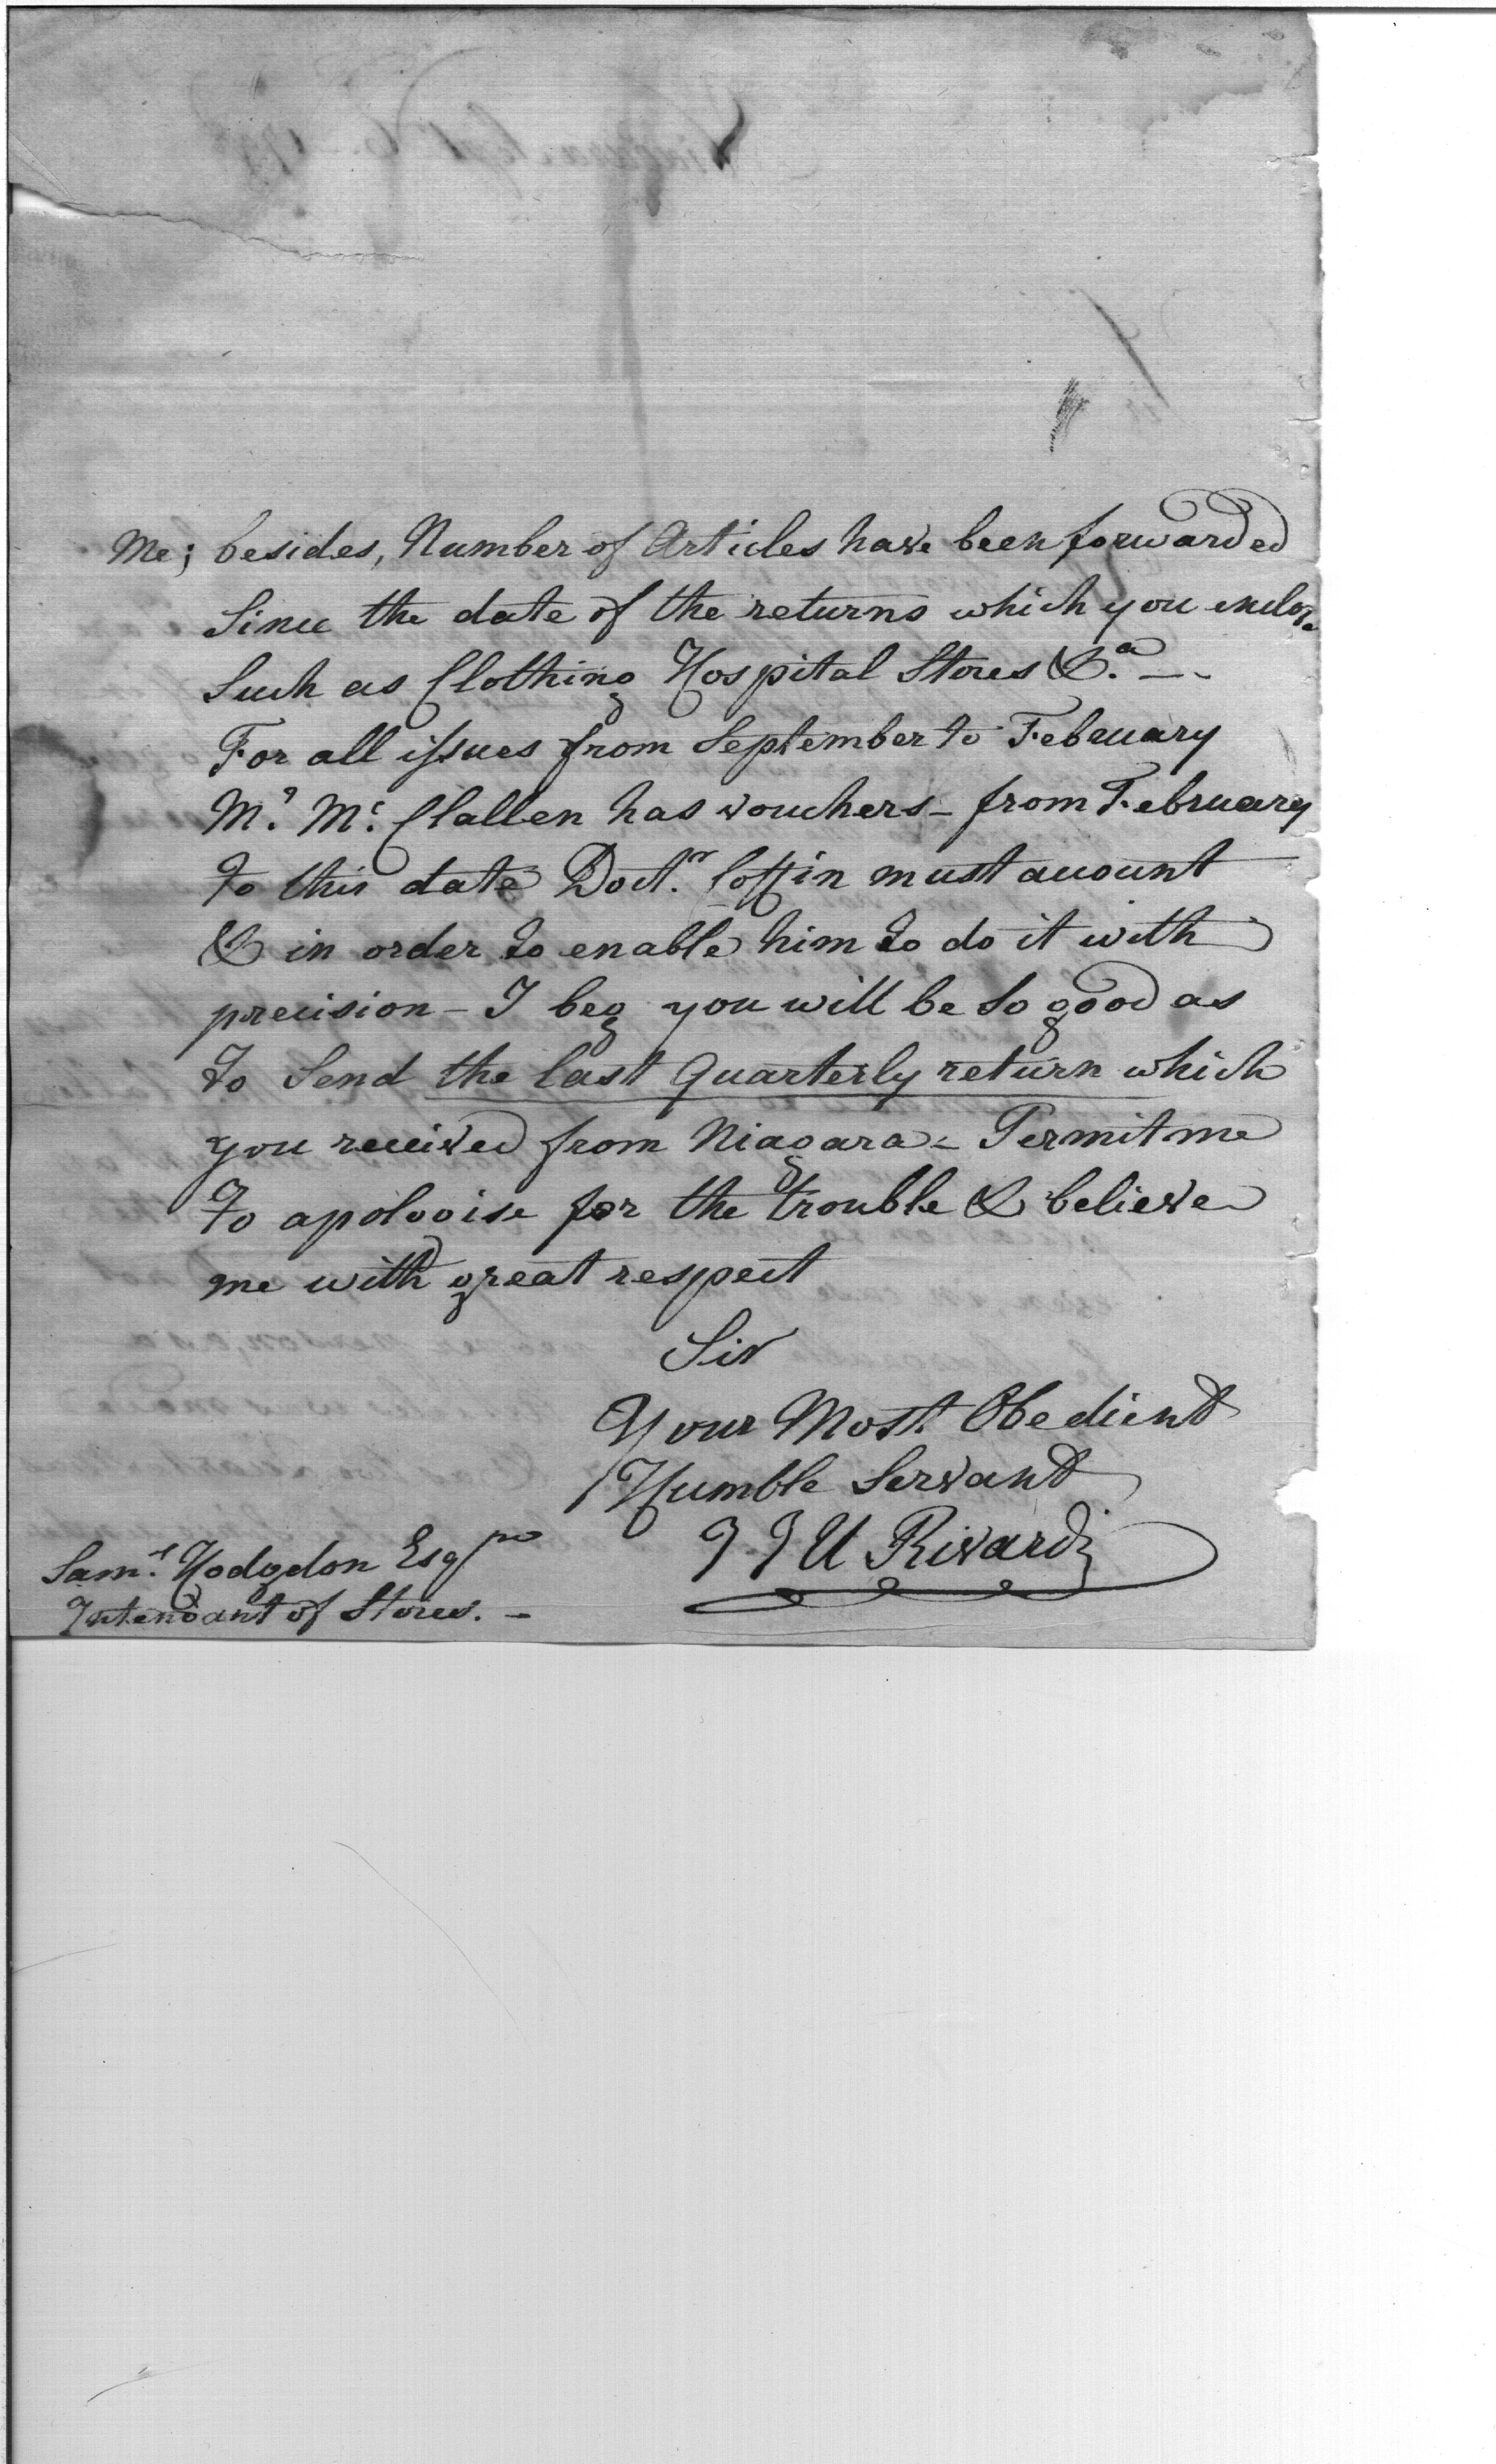 Me; besides, Number of Articles have been forwarded
Since the date of the returns which you enclose
Such as Clothing Hospital Stores &.a —
For all issues from September to February
Mr. Mc. Clallen has vouchers – from February
to this date Doct.r Coffin must account
& in order to enable him to do it with
precision – I beg you will be So good as
to Send the last Quarterly return which
you received from Niagara – Permit me
to apologise for the trouble & believe
me with great respect
Sir
Your Most Obedient
Humble Servant
J J U Rivardi
Sam.l Hodgdon Esqre
Intendant of Stores. –